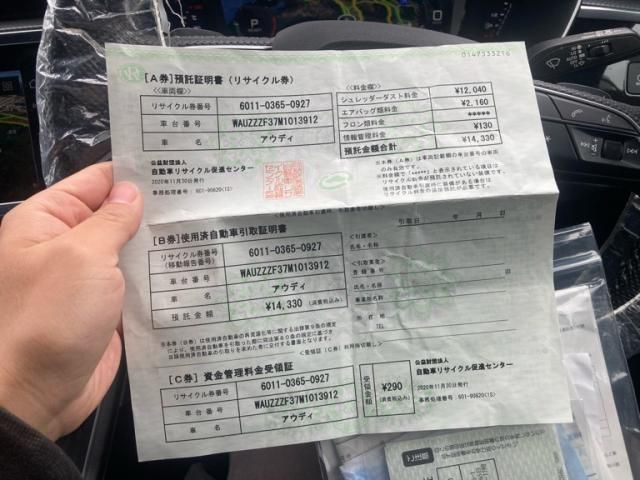 0147333216
[A券]預託証明書(リサイクル券)
≪車両欄≫
リサイクル券番号 6011-0365-0927
車台番号 WAUZZZF37M1013912
車名 アウディ
≪料金欄≫
シュレッダーダスト料金 ¥12,040
エアバッグ類料金 ¥2,160
フロン類料金 *****
情報管理料金 ¥130
預託金額合計 ¥14,330
公益財団法人
自動車リサイクル促進センター
2020年11月30日発行
事務処理番号: 601-90620(1S)
※本券(A券)は車両記載欄の車台番号の車両
のみ有効です。
※料金欄で「*****」と表示されている項は
リサイクル料金が預託されていない装備です。
[B券]使用済自動車引取証明書
リサイクル券番号 6011-0365-0927
(移動報告番号)
車台番号 WAUZZZF37M1013912
車名 アウディ
預託金額 ¥14,330 (消費税込み)
引取日 年 月 日
≪引渡者≫
氏名・名称
≪引取業者≫
登録番号
氏名・名称
事業所名称
所在地
TEL
[C券]資金管理料金受領証
リサイクル券番号 6011-0365-0927
車台番号 WAUZZZF37M1013912
車名 アウディ
受領金額 ¥290
(消費税込み)
公益財団法人
自動車リサイクル促進センター
2020年11月30日発行
事務処理番号: 601-90620(1S)
P